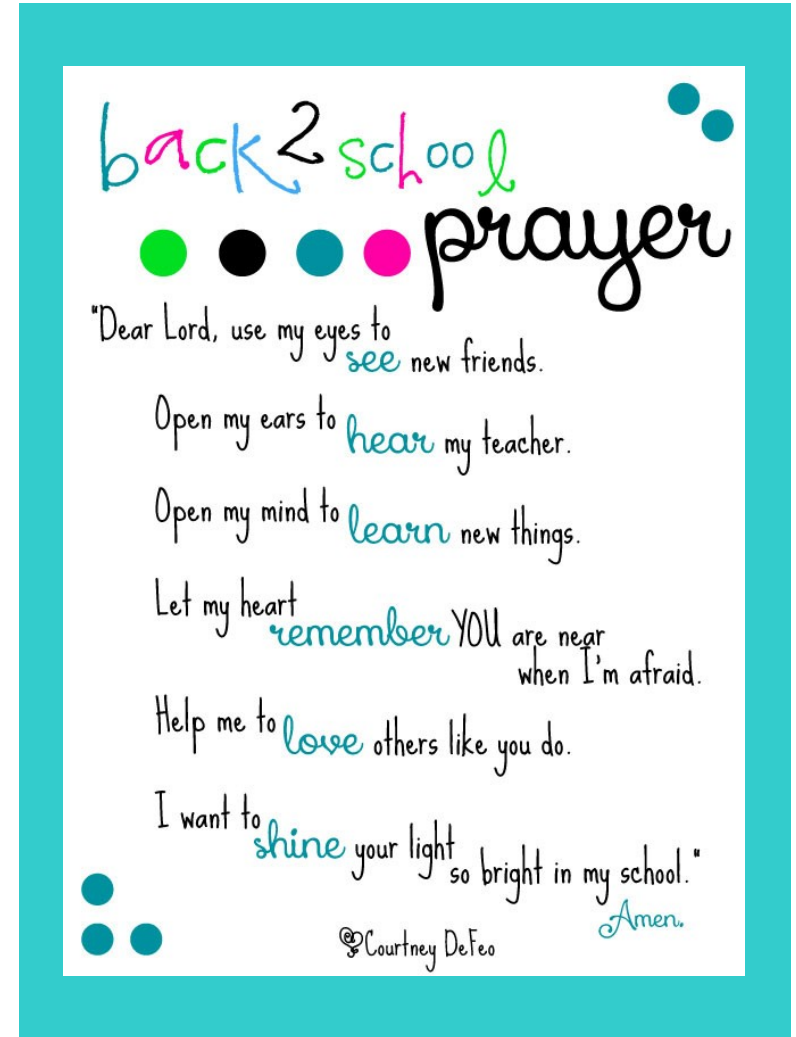 back 2 school
prayer
"Dear Lord, use my eyes to
see new friends.
Open my ears to hear my teacher.
Open my mind to learn new things.
Let my heart
remember YOU are near
when I'm afraid.
Help me to love others like you do.
I want to
shine your light
so bright in my school."
Amen.
Courtney DeFeo